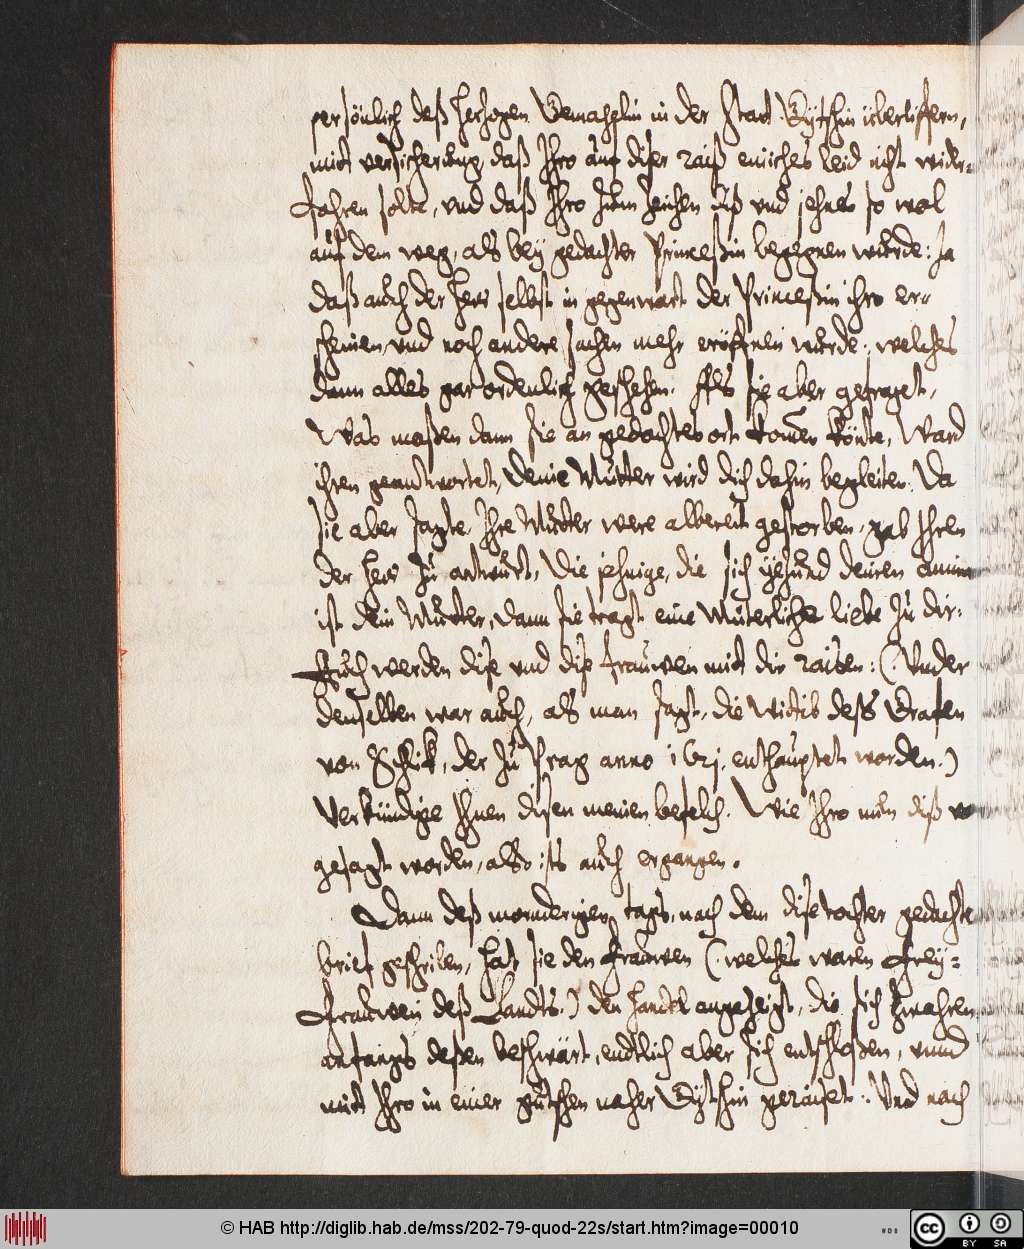 persönlich deß Hertzogen Gemahlin in der Statt Gytschin überliffern,
mitt versicherung, daß Ihro auf diser raiß einiches leid nicht wider-
fahren solte, und daß Ihro zum zeichen diß und jehnes so wol
auf dem weg, als bey gedachter Princeßin begegnen würde: Ja
daß auch der Herr selbst in gegenwart der Princeßin ihro er-
scheinen, und noch andere sachen mehr eröffnen würde: welches
dann alles gar ordenlich geschehen. Als sie aber gefraget,
Was maßen dann sie an gedachtes ort komen könte, Ward
ihren geantwortet, Deine Mutter wird dich dahin begleiten. Da
sie aber sagte, Ihre Mutter were albereit gestorben, gab Ihren
der Herr zu antwort, Die jehnige, die sich yezund deinen
ist dein Mutter, dann sie tragt eine Müterliche liebe zu dir:
Auch werden dise und dise frauwen mitt dir raisen: (Under
denselben war auch, als man sagt, die Wittib deß Grafen
von Schlik, der zu Prag anno 1621. enthauptet worden.)
Verkündige Ihnen disen meinen befelch. Wie Ihro nuhn diß
gesagt worden, also ists auch ergangen.
Dann deß mornderigen tags, nach dem dise tochter gedachte
brief geschriben, hat sie den frauwen (welches waren Frey-
frauwen deß Landts.) den handel angezeigt, die sich zwahren
anfangs deßen beschwärt, endtlich aber sich entschloßen, unnd
mitt Ihro in einer gutschen naher Gytschin geraiset. Und nach
© HAB http://diglib.hab.de/mss/202-79-quod-22s/start.htm?image=00010
WDB
cc BY SA